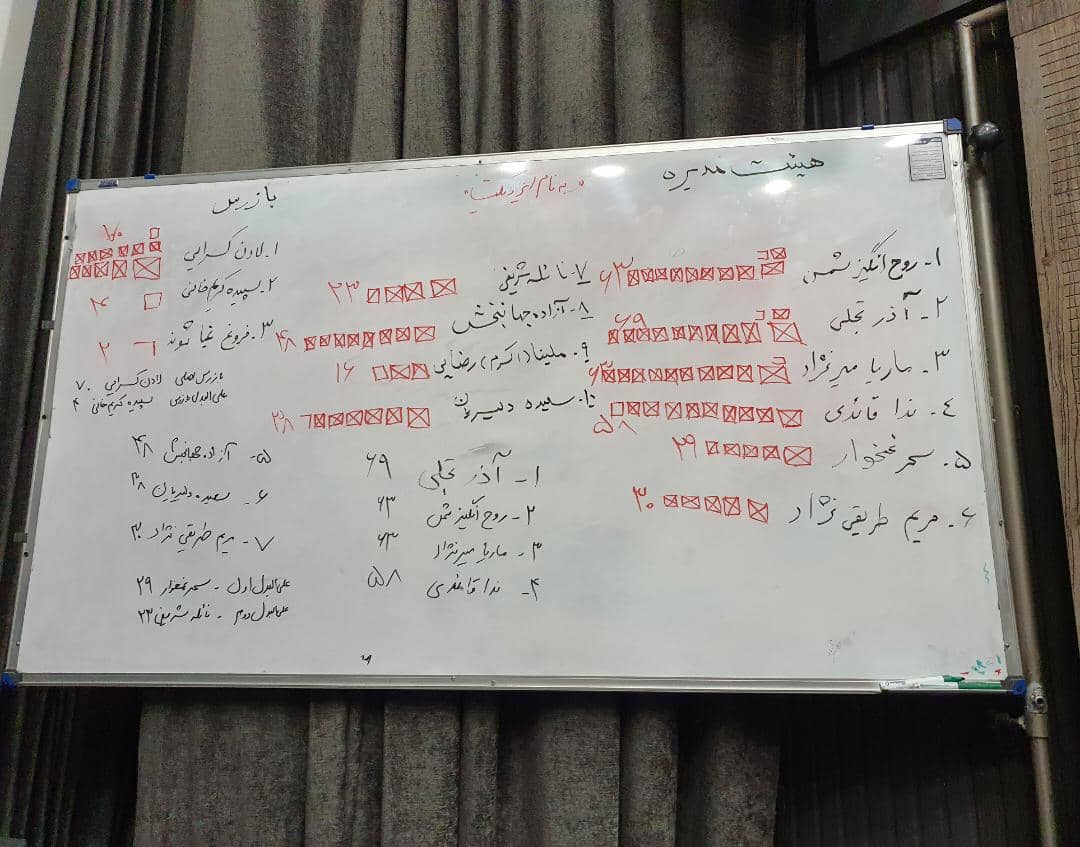 هیئت مدیره
به نام
۱- روح انگیز شمس ۶۳
۲- آذر تجلی ۶۹
۳- ماریا میرنژاد ۶۳
۴- ندا قائدی ۵۸
۵- سحر غمخوار ۲۹
۶- مریم طریقی نژاد ۳۰
۷- نائله شریفی ۲۳
۸- آزاده جهانبخش ۴۸
۹- ملینا (اکرم) رضایی ۱۶
۱۰- سعیده دلیریان ۳۸
بازرس
۱- لادن کسرایی ۷۰
۲- سپیده کریم خانی ۴
۳- فروغ ۲
بازرس اصلی لادن کسرایی ۷۰
علی البدل بازرس سپیده کریم خانی ۴
۱- آذر تجلی ۶۹
۲- روح انگیز شمس ۶۳
۳- ماریا میرنژاد ۶۳
۴- ندا قائدی ۵۸
۵- آزاده جهانبخش ۴۸
۶- سعیده دلیریان ۳۸
۷- مریم طریقی نژاد ۳۰
علی البدل اول - سحر غمخوار ۲۹
علی البدل دوم - نائله شریفی ۲۳